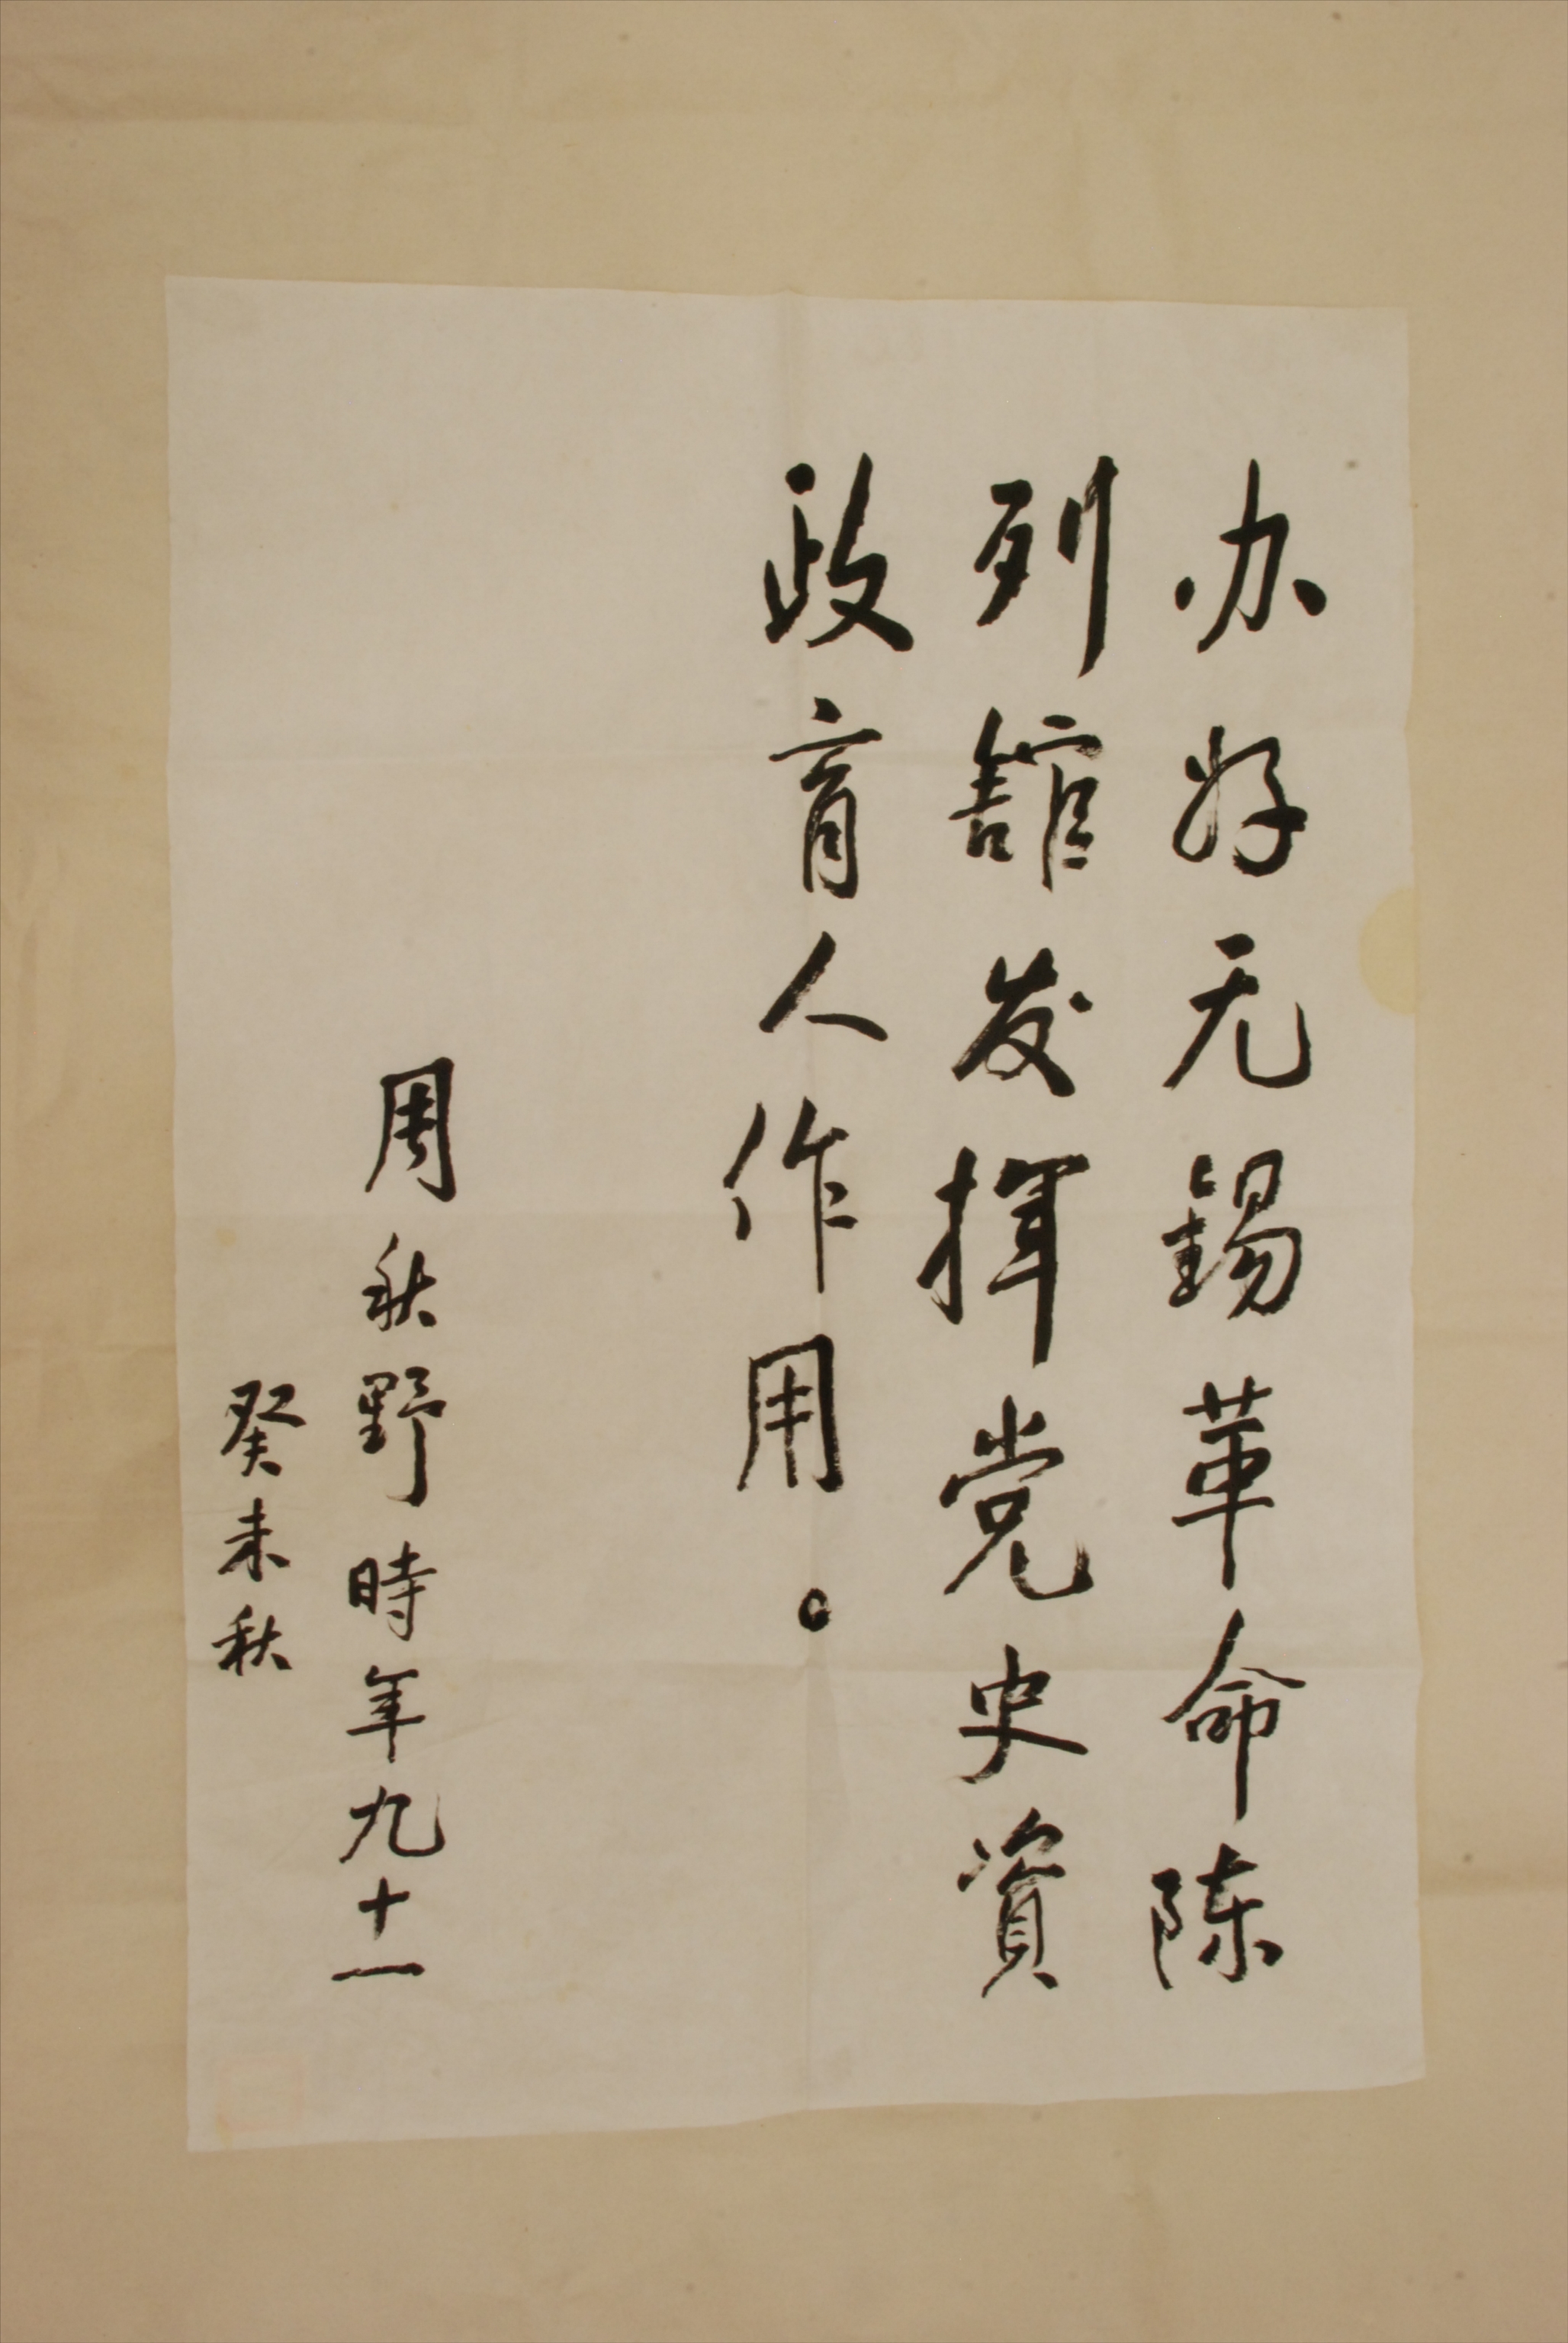 办好无锡革命陈
列舘发挥党史資
政育人作用。
周秋野時年九十一
癸未秋